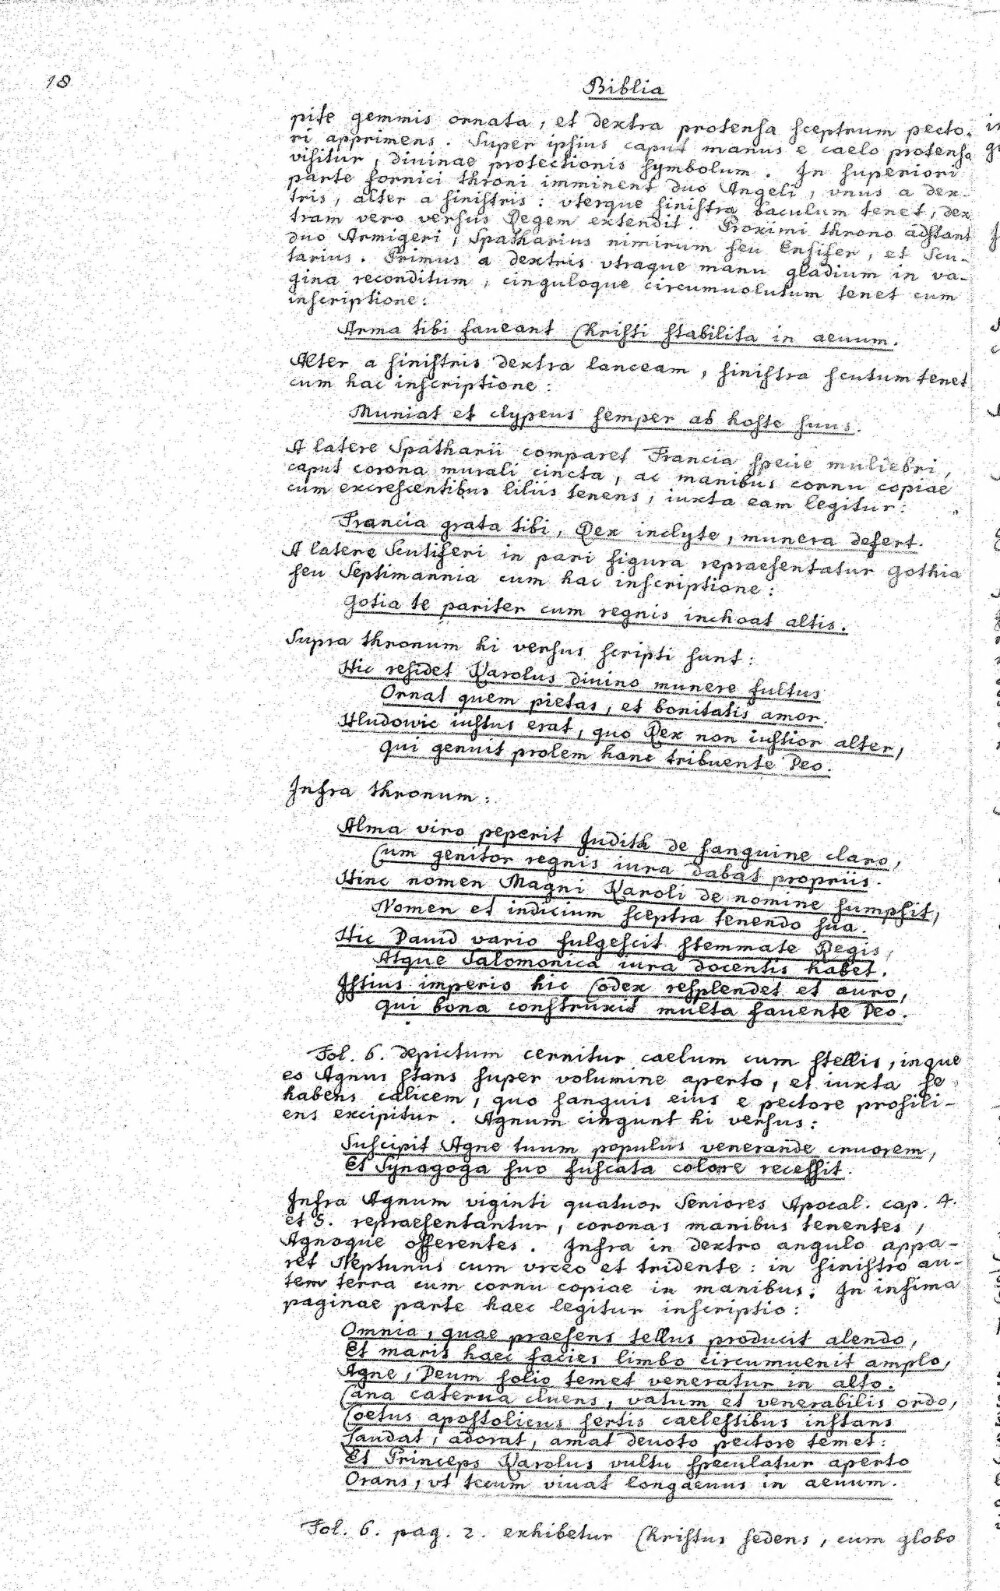 18
Biblia
pite gemmis ornata, et dextra protensa sceptrum pecto-
ri apprimens. Super ipsius caput manus e caelo protensa
visitur, diuinae protectionis symbolum. In superiori
parte fornici throni imminent duo Angeli, vnus a dex-
tris, alter a sinistris: vterque sinistra baculum tenet, dex
tram vero versus Regem extendit. Proximi throno adstant
duo Armigeri, Spatharius nimirum seu Ensifer, et Scu-
tarius. Primus a dextris vtraque manu gladium in va-
gina reconditum, cinguloque circumuolutum tenet cum
inscriptione:
Arma tibi faueant Christi stabilita in aeuum.
Alter a sinistris dextra lanceam, sinistra scutum tenet
cum hac inscriptione:
Muniat et clypeus semper ab hoste suus.
A latere Spatharii comparet Francia specie muliebri,
caput corona murali cincta, ac manibus cornu copiae
cum excrescentibus liliis tenens, iuxta eam legitur:
Francia grata tibi, Rex inclyte, munera defert.
A latere Scutiferi in pari figura repraesentatur Gothia
seu Septimannia cum hac inscriptione:
Gotia te pariter cum regnis inchoat altis.
Supra thronum hi versus scripti sunt:
Hic residet Karolus diuino munere fultus
Ornat quem pietas, et bonitatis amor.
Hludowic iustus erat, quo Rex non iustior alter,
Qui genuit prolem hanc tribuente Deo.
Infra thronum:
Alma viro peperit Judith de sanguine claro,
Cum genitor regnis iura dabat propriis.
Hinc nomen Magni Karoli de nomine sumpsit,
Nomen et indicium sceptra tenendo sua.
Hic Dauid vario fulgescit stemmate Regis,
Atque Salomonica iura docentis habet.
Istius imperio hic Codex resplendet et auro,
Qui bona construxit multa fauente Deo.
Fol. 6. depictum cernitur caelum cum stellis, inque
eo Agnus stans super volumine aperto, et iuxta se
habens calicem, quo sanguis eius e pectore prosili-
ens excipitur. Agnum cingunt hi versus:
Suscipit Agne tuum populus venerande cruorem,
Et Synagoga suo fuscata colore recessit.
Infra Agnum viginti quatuor Seniores Apocal. cap. 4.
et 5. repraesentantur, coronas manibus tenentes,
Agnoque offerentes. Infra in dextro angulo appa-
ret Neptunus cum vrceo et tridente: in sinistro au-
tem terra cum cornu copiae in manibus. In infima
paginae parte haec legitur inscriptio:
Omnia, quae praesens tellus producit alendo,
Et maris haec facies limbo circumuenit amplo,
Agne, Deum solio temet veneratur in alto.
Cana caterua cluens, vatum et venerabilis ordo,
Coetus apostolicus sertis caelestibus instans
Laudat, adorat, amat deuoto pectore temet:
Et Princeps Karolus vultu speculatur aperto
Orans, vt tecum viuat longaeuus in aeuum.
Fol. 6. pag. 2. exhibetur Christus sedens, cum globo